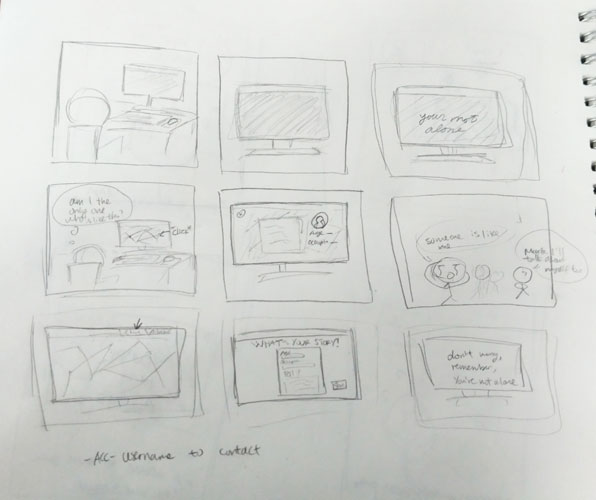 your not
alone
am I the
only one
who's like this?
someone is like
me
Maybe I'll
talk about
myself too
WHAT'S YOUR STORY?
don't worry,
remember,
You're not alone
-Acc- username to contact